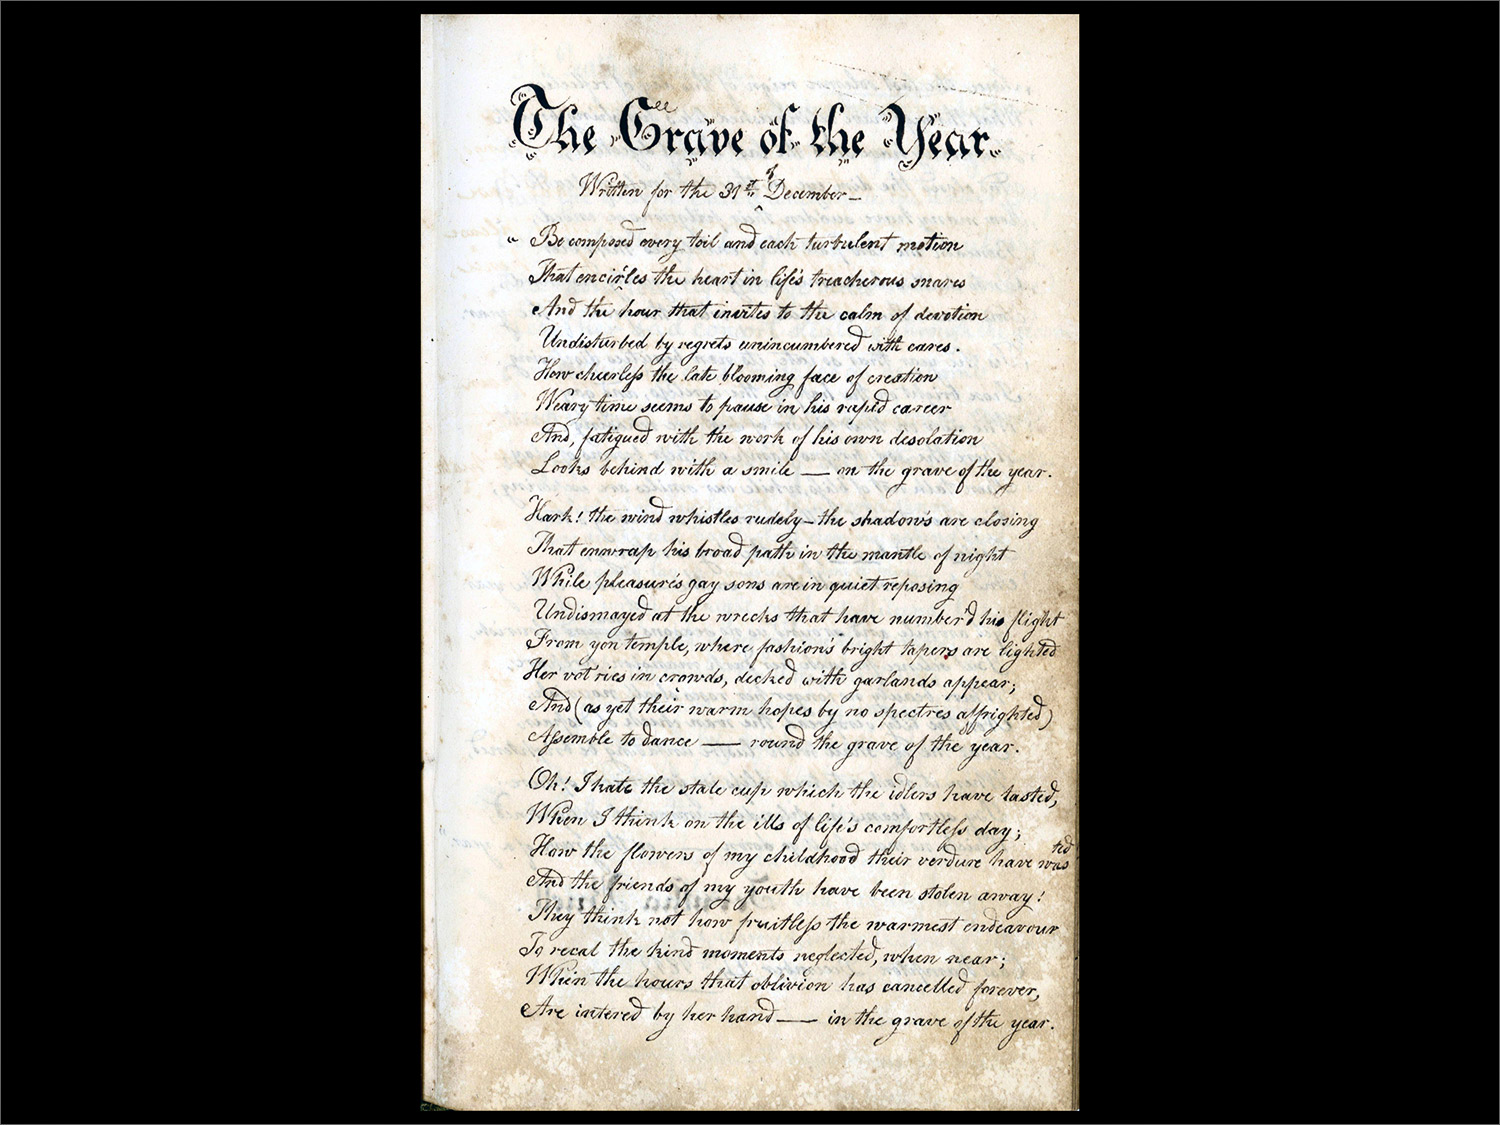 The Grave of the Year.
Written for the 31st of December—
" Be composed every toil and each turbulent motion
That encircles the heart in life's treacherous snares
And the hour that invites to the calm of devotion
Undisturbed by regrets unincumbered with cares.
How cheerless the late blooming face of creation
Weary time seems to pause in his rapid career
And, fatigued with the work of his own desolation
Looks behind with a smile — on the grave of the year.
Hark! the wind whistles rudely—the shadow's are closing
That enwrap his broad path in the mantle of night
While pleasure's gay sons are in quiet reposing
Undismayed at the wrecks that have number'd his flight
From yon temple, where fashion's bright tapers are lighted
Her vot'ries in crowds, decked with garlands appear;
And (as yet their warm hopes by no spectres affrighted)
Assemble to dance — round the grave of the year.
Oh! I hate the stale cup which the idlers have tasted,
When I think on the ills of life's comfortless day;
How the flowers of my childhood their verdure have wasted
And the friends of my youth have been stolen away!
They think not how fruitless the warmest endeavour
To recal the kind moments neglected, when near;
When the hours that oblivion has cancelled forever,
Are intered by her hand — in the grave of the year.